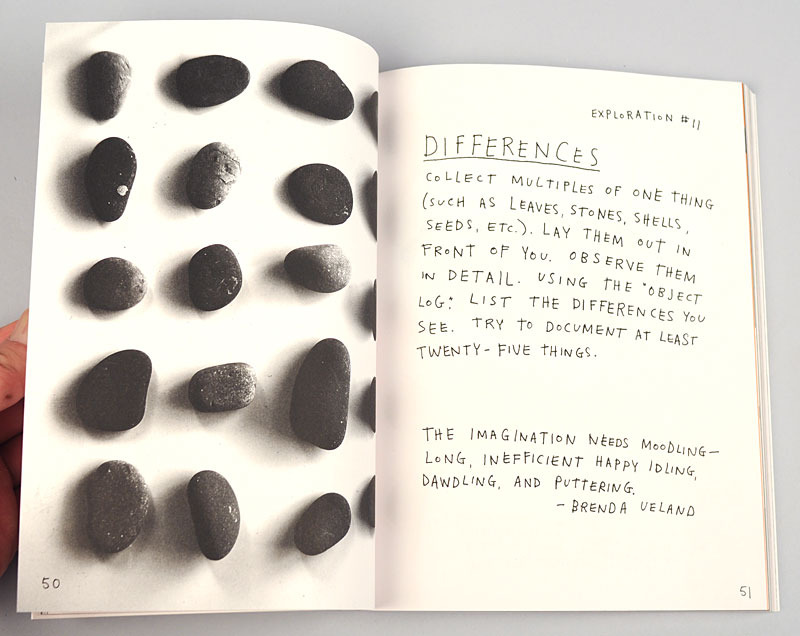 50
EXPLORATION #11
DIFFERENCES
COLLECT MULTIPLES OF ONE THING
(SUCH AS LEAVES, STONES, SHELLS,
SEEDS, ETC.). LAY THEM OUT IN
FRONT OF YOU. OBSERVE THEM
IN DETAIL. USING THE "OBJECT
LOG." LIST THE DIFFERENCES YOU
SEE. TRY TO DOCUMENT AT LEAST
TWENTY-FIVE THINGS.
THE IMAGINATION NEEDS MOODLING—
LONG, INEFFICIENT HAPPY IDLING,
DAWDLING, AND PUTTERING.
- BRENDA UELAND
51